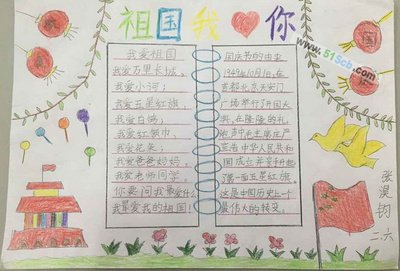 祖国我爱你
www.51Scb.com
我爱祖国
我爱万里长城，
我爱小河；
我爱五星红旗
我爱白鸽；
我爱红领巾，
我爱花朵；
我爱爸爸妈妈，
我爱老师同学
你要问我最爱什么
我最爱我的祖国！
国庆节的由来
1949年10月1日，在
首都北京天安门
广场举行了开国大
典，在隆隆的礼
炮声中毛主席庄严
宣告中华人民共和
国成立并亲手升起
了第一面五星红旗
这是中国历史上一个
最伟大的转变。
二.六